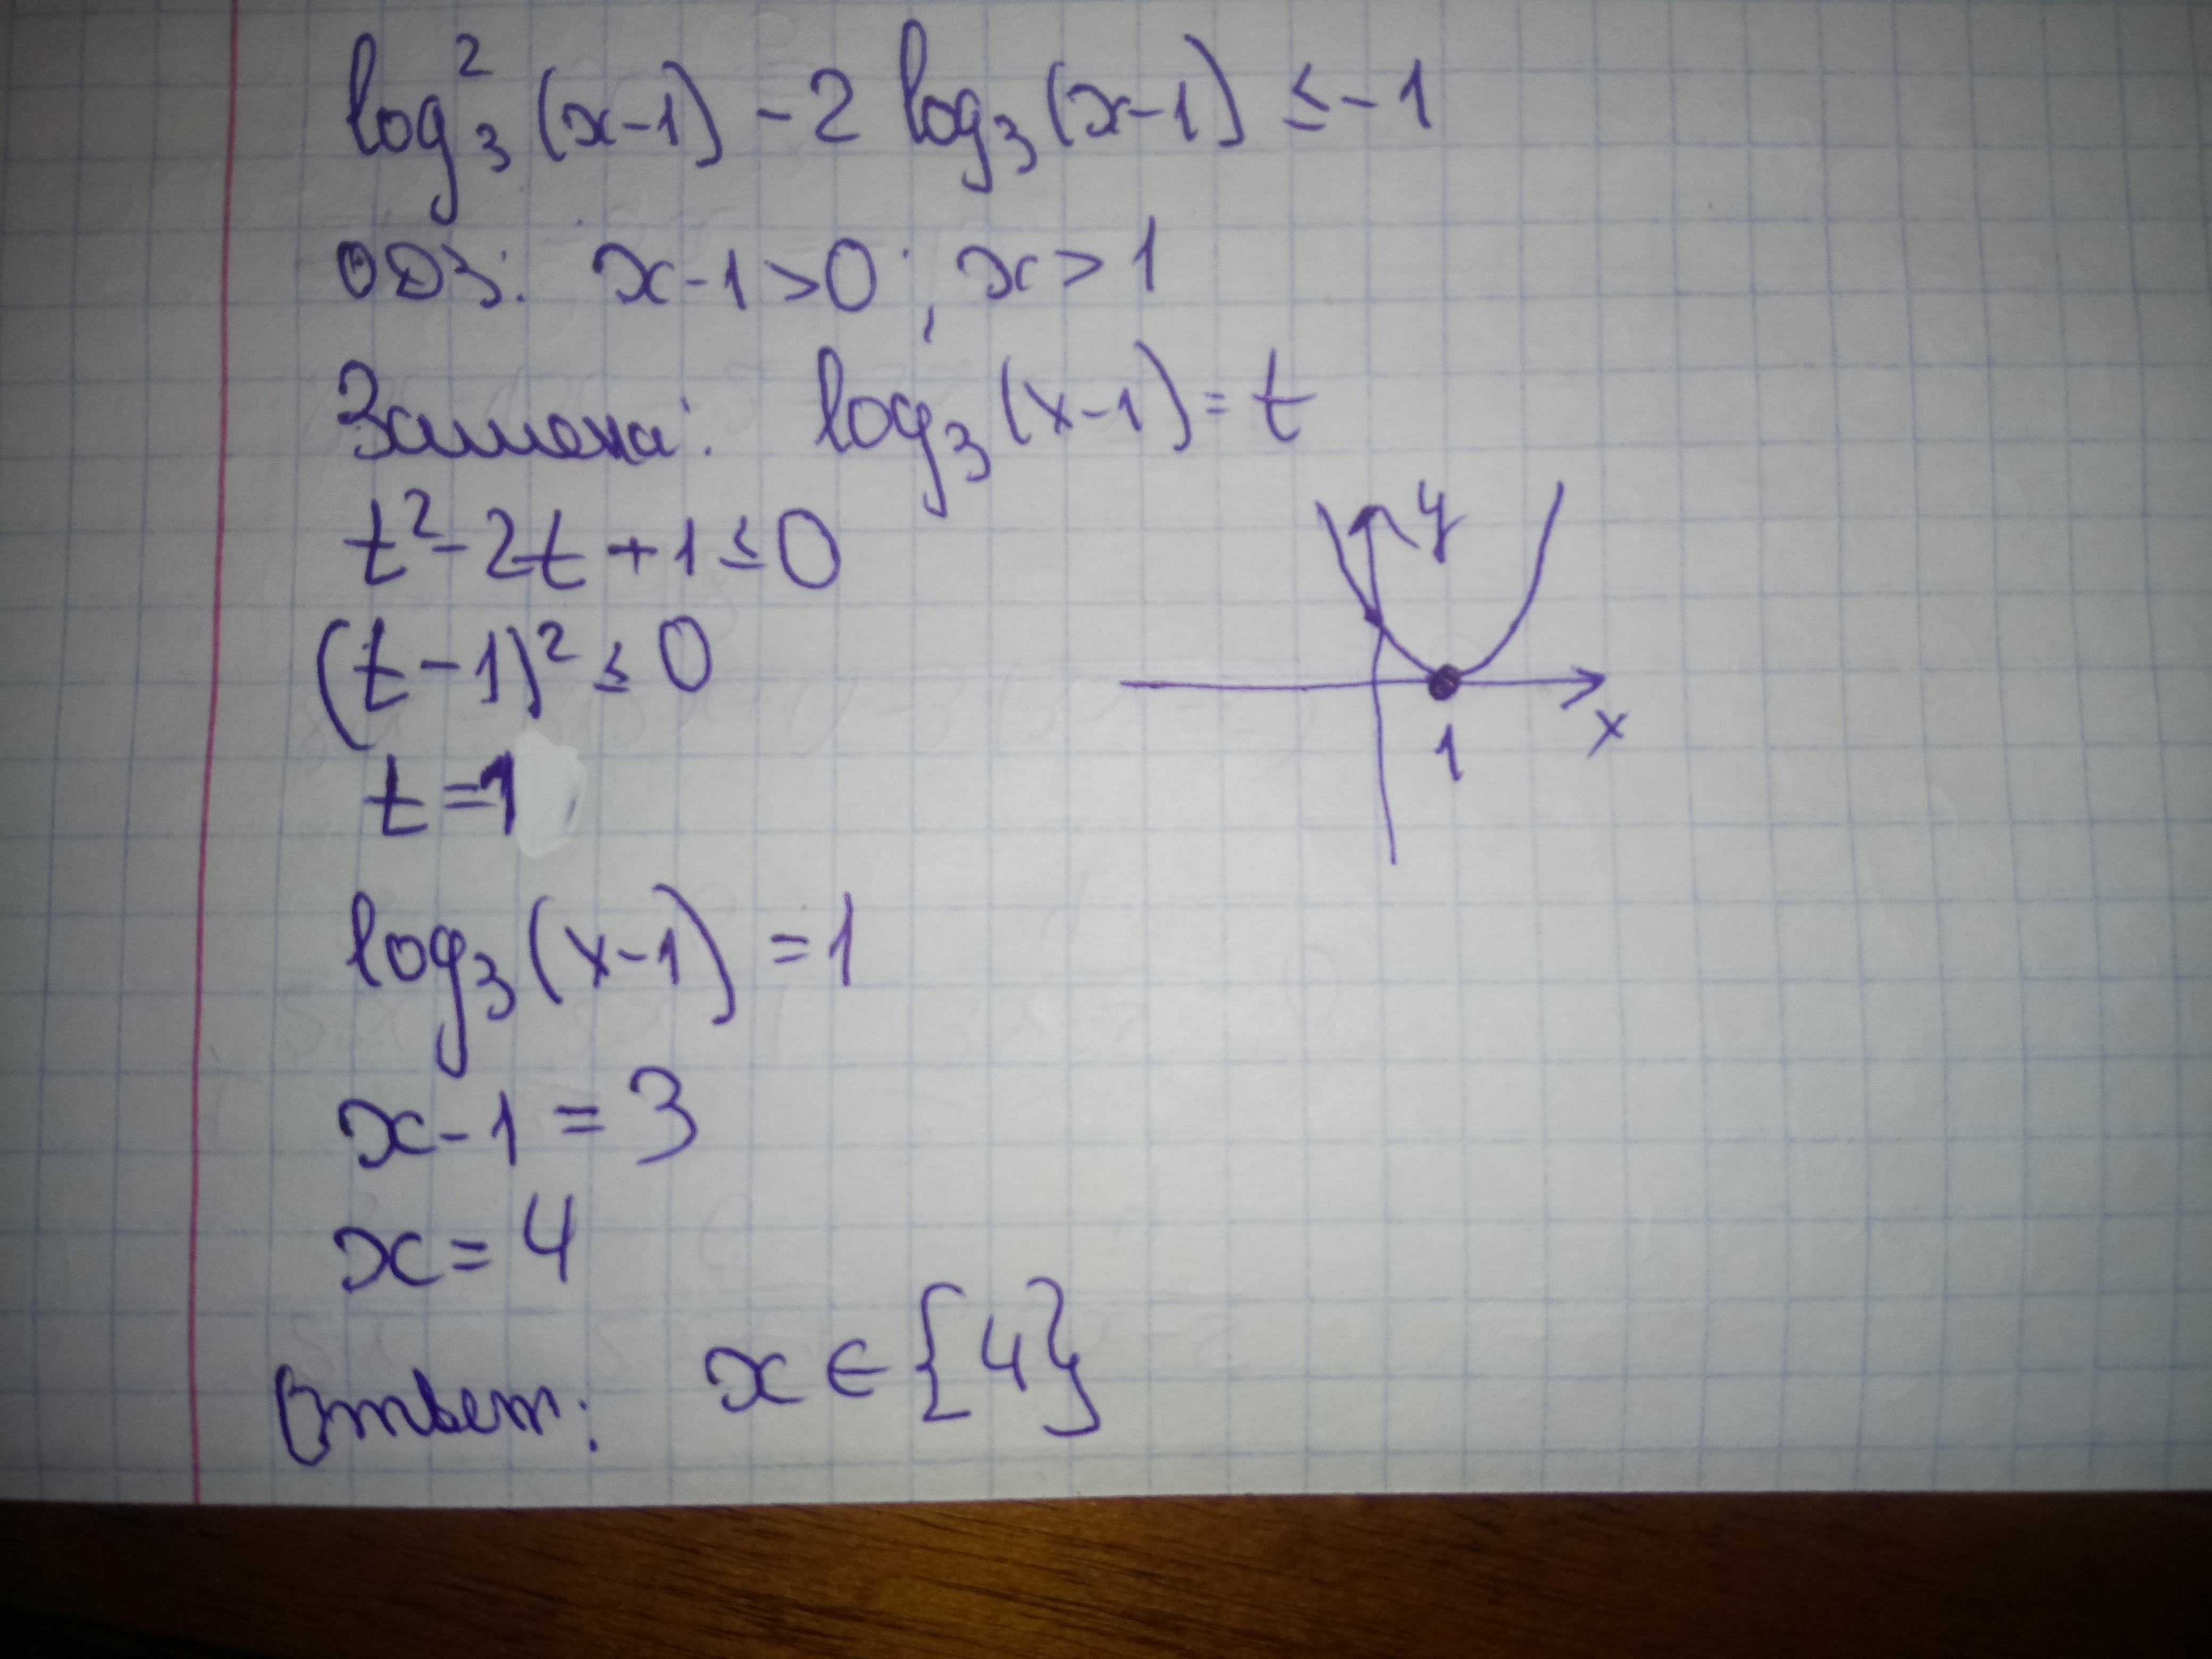 log₃²(x-1) - 2 log₃(x-1) ≤ -1
ОДЗ: x-1>0; x>1
Замена: log₃(x-1) = t
t² - 2t + 1 ≤ 0
y
(t-1)² ≤ 0
x
1
t = 1
log₃(x-1) = 1
x-1 = 3
x = 4
Ответ: x ∈ {4}